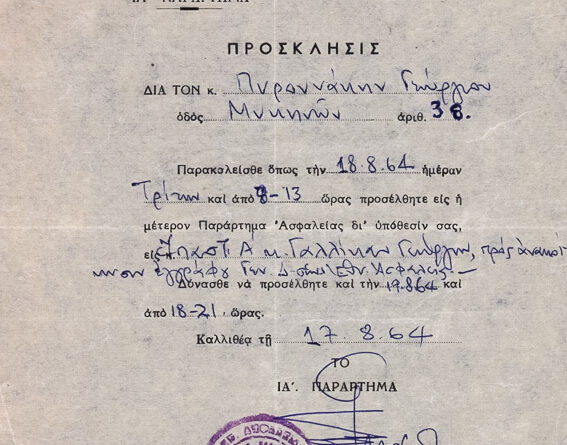 ΙΑ' ΠΑΡΑΡΤΗΜΑ
ΠΡΟΣΚΛΗΣΙΣ
ΔΙΑ ΤΟΝ κ. Πυρουνάκην Γεώργιον
ὁδὸς Μυκηνῶν ἀριθ. 38.
Παρακαλεῖσθε ὅπως τὴν 18.8.64 ἡμέραν
Τρίτην καὶ ἀπὸ 8-13 ὥρας προσέλθητε εἰς ἡ
μέτερον Παράρτημα Ἀσφαλείας δι' ὑπόθεσίν σας,
εἰς Α κ. Γεώργιον, πρὸς ἀνακοί
νωσιν ἐγγράφου Γεν. Δ-σεως Ἐθν. Ἀσφαλείας —
Δύνασθε νὰ προσέλθητε καὶ τὴν 19.8.64 καὶ
ἀπὸ 18-21 ὥρας.
Καλλιθέα τῇ 17.8.64
ΤΟ
ΙΑ'. ΠΑΡΑΡΤΗΜΑ